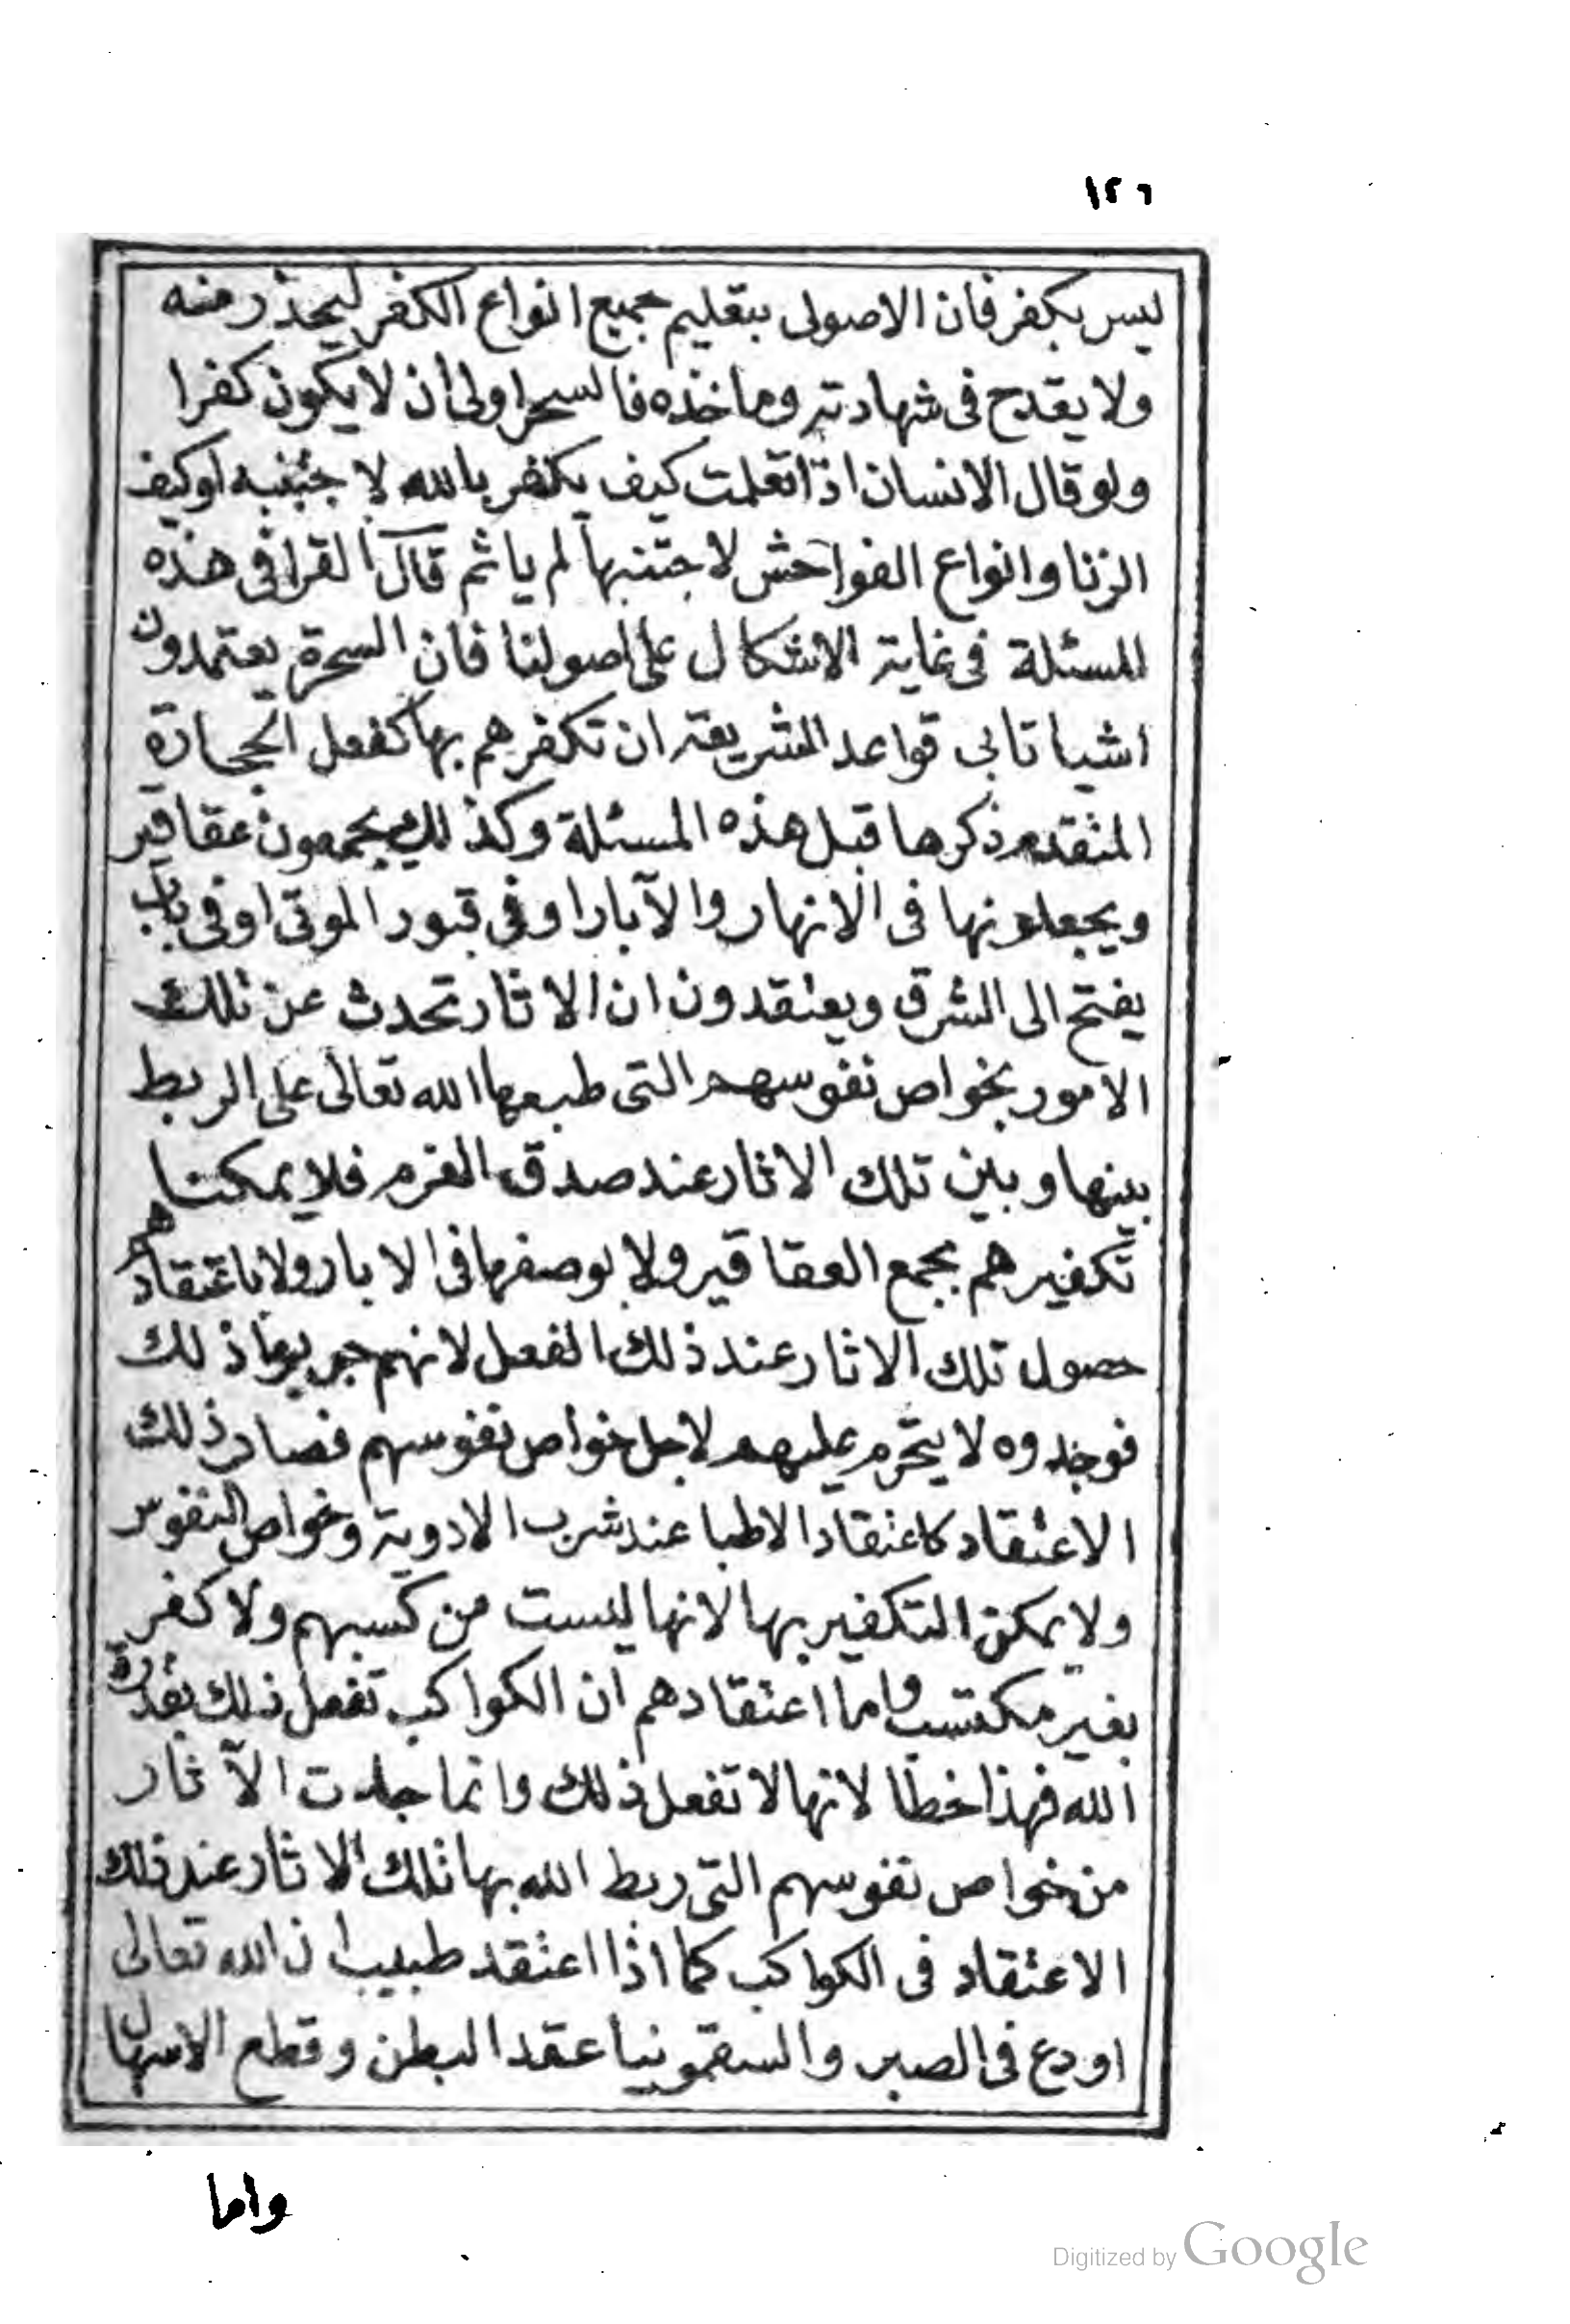 ١٢٦
ليس بكفر فان الاصولى بتعليم جميع انواع الكفر ليحذر منه
ولا يقدح فى شهادته وماخذه فالسحر اولى ان لا يكون كفرا
ولو قال الانسان اذا تعلمت كيف يكفر بالله لاجتنبه او كيف
الزنا وانواع الفواحش لاجتنبها لم ياثم قال القرافى هذه
المسئلة فى غاية الاشكال على اصولنا فان السحرة يعتمدون
اشيا تابى قواعد الشريعة ان تكفرهم بها كفعل الحجارة
المتقدم ذكرها قبل هذه المسئلة وكذلك يجمعون عقاقير
ويجعلونها فى الانهار والآبار او فى قبور الموتى او فى باب
يفتح الى الشرق ويعتقدون ان الاثار تحدث عن تلك
الامور بخواص نفوسهم التى طبعها الله تعالى على الربط
بينها وبين تلك الاثار عند صدق العزم فلا يمكننا
تكفيرهم بجمع العقاقير ولا بوضعها فى الابار ولا باعتقادهم
حصول تلك الاثار عند ذلك الفعل لانهم جربوا ذلك
فوجدوه لا يتخرم عليهم لاجل خواص نفوسهم فصار ذلك
الاعتقاد كاعتقاد الاطبا عند شرب الادوية وخواص النفوس
ولا يمكن التكفير بها لانها ليست من كسبهم ولا كفر
بغير مكتسب واما اعتقادهم ان الكواكب تفعل ذلك بقدرة
الله فهذا خطا لانها لا تفعل ذلك وانما جاءت الآثار
من خواص نفوسهم التى ربط الله بها تلك الاثار عند ذلك
الاعتقاد فى الكواكب كما اذا اعتقد طبيب ان الله تعالى
اودع فى الصبر والسقمونيا عقد البطن وقطع الاسهال
واما
Digitized by Google